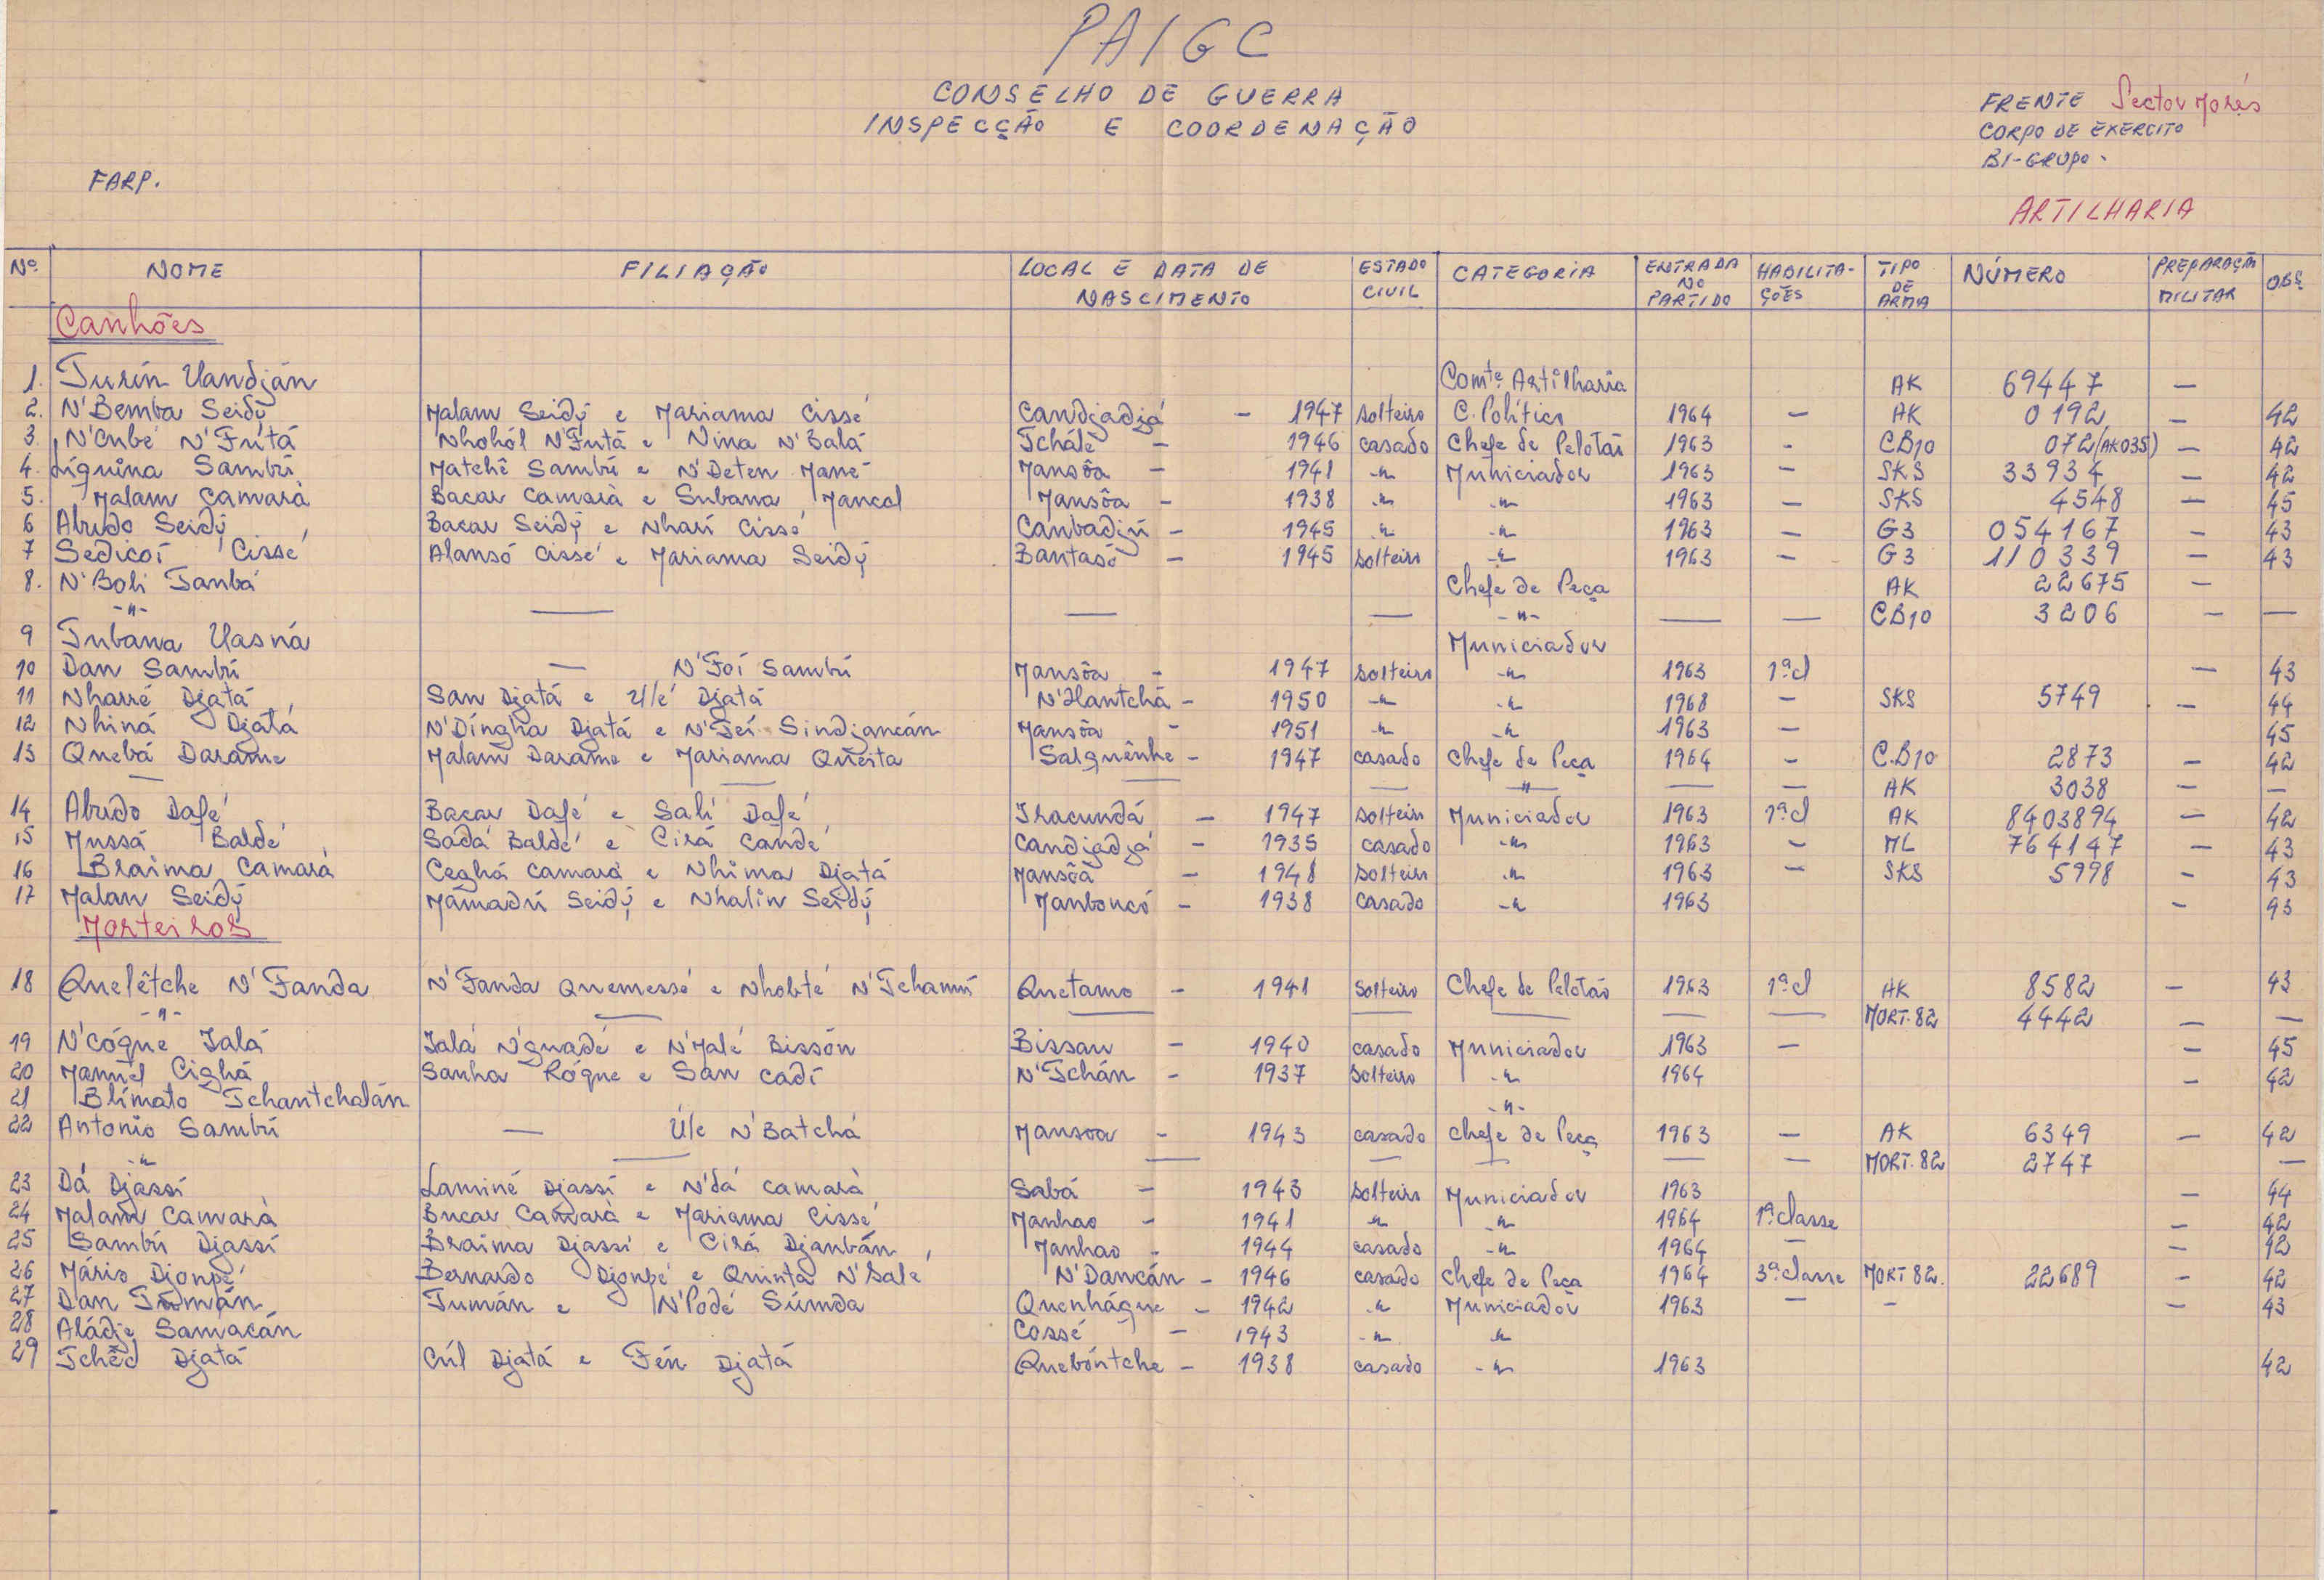 PAIGC
CONSELHO DE GUERRA
INSPECÇÃO E COORDENAÇÃO
FRENTE Sector Morés
CORPO DE EXERCITO
BI-GRUPO.
FARP.
ARTILHARIA
Nº NOME FILIAÇÃO LOCAL E DATA DE NASCIMENTO ESTADO CIVIL CATEGORIA ENTRADA NO PARTIDO HABILITAÇÕES TIPO DE ARMA NÚMERO PREPARAÇÃO MILITAR OBS.
Canhões
1. Turín Uandján Comte. Artilharia AK 69447 —
2. N'Bemba Seidý Malam Seidý e Mariama Cissé Candjadjá - 1947 solteiro C. Político 1964 — AK 0192 — 42
3. N'Cubé N'Futá Nhohól N'Futá e Nina N'Balá Tchále - 1946 casado Chefe de Pelotão 1963 - CB10 072 (AK035) — 42
4. Líguina Sambú Matchê Sambú e N'Deten Mané Mansôa - 1941 -"- Municiador 1963 — SKS 33934 — 42
5. Malam Camará Bacar Camará e Subana Mancal Mansôa - 1938 -"- -"- 1963 — SKS 4548 — 45
6 Abudo Seidý Bacar Seidý e Nharí Cissé Canbadjú - 1945 -"- -"- 1963 — G3 054167 — 43
7 Sedicoí Cissé Alansó Cissé e Mariama Seidý Bantasó - 1945 solteiro -"- 1963 — G3 110339 — 43
8. N'Boli Tanbá Chefe de Peça AK 22675 —
-"- — — — -"- — — CB10 3206 — —
9 Tubana Uasná Municiador
10 Dan Sambú — N'Foí Sambú Mansôa - 1947 solteiro -"- 1963 1ª cl — 43
11 Nharré Djatá San Djatá e U/é Djatá N'Hantchá - 1950 -"- -"- 1968 — SKS 5749 — 44
12 Nhiná Djatá N'Díngha Djatá e N'Feí Sindjancán Mansôa - 1951 -"- -"- 1963 — 45
13 Quebá Darame Malam Darame e Mariama Queita Salquênhe - 1947 casado Chefe de Peça 1964 - C.B10 2873 — 42
— — — — -"- — — AK 3038 — —
14 Abudo Dafé Bacar Dafé e Salí Dafé Iracundá - 1947 solteiro Municiador 1963 1ª cl AK 8403894 — 42
15 Mussá Baldé Sadá Baldé e Cirá Candé Candjadjá - 1935 casado -"- 1963 - ML 764147 — 43
16 Braima Camará Ceghá Camará e Nhima Djatá Mansôa - 1948 solteiro -"- 1963 — SKS 5998 - 43
17 Malan Seidý Mámadú Seidý e Nhalin Seidý Manboncó - 1938 casado -"- 1963 - 93
Morteiros
18 Quelêtche N'Fanda N'Fanda Quemessé e Nholté N'Tchamú Quetamo - 1941 Solteiro Chefe de Pelotão 1963 1ª cl AK 8582 — 43
-"- — — — — — — MORT. 82 4442 — —
19 N'Cógne Ialá Ialá N'guadé e N'Malé Bissón Bissau - 1940 casado Municiador 1963 — — 45
20 Manuel Cighá Sanha Rógne e San Cadí N'Tchán - 1937 Solteiro -"- 1964 — 42
21 Blímato Tchantchalán -"-
22 Antonio Sambú — Ú/e N'Batchá Mansoa - 1943 casado chefe de Peça 1963 — AK 6349 — 42
-"- — — — — — — MORT. 82 2747 —
23 Dá Djassí Laminé Djassí e N'dá Camará Sabá - 1943 solteiro Municiador 1963 — 44
24 Malam Camará Bucar Camará e Mariama Cissé Manhao - 1941 -"- -"- 1964 1ª classe — 42
25 Sambú Djassí Braima Djassí e Cirá Djanbán Manhao - 1944 casado -"- 1964 — — 42
26 Mário Djonpé Bernardo Djonpé e Quinta N'Salé N'Dancán - 1946 casado chefe de Peça 1964 3ª classe MORT 82. 22689 — 42
27 Dan Tumán Tumán e N'Podé Súmda Quenhágue - 1942 -"- Municiador 1963 — - — 43
28 Aládje Samacán Cossé - 1943 -"- -"-
29 Tchêd Djatá Cúl Djatá e Fén Djatá Quebóntche - 1938 casado -"- 1963 42